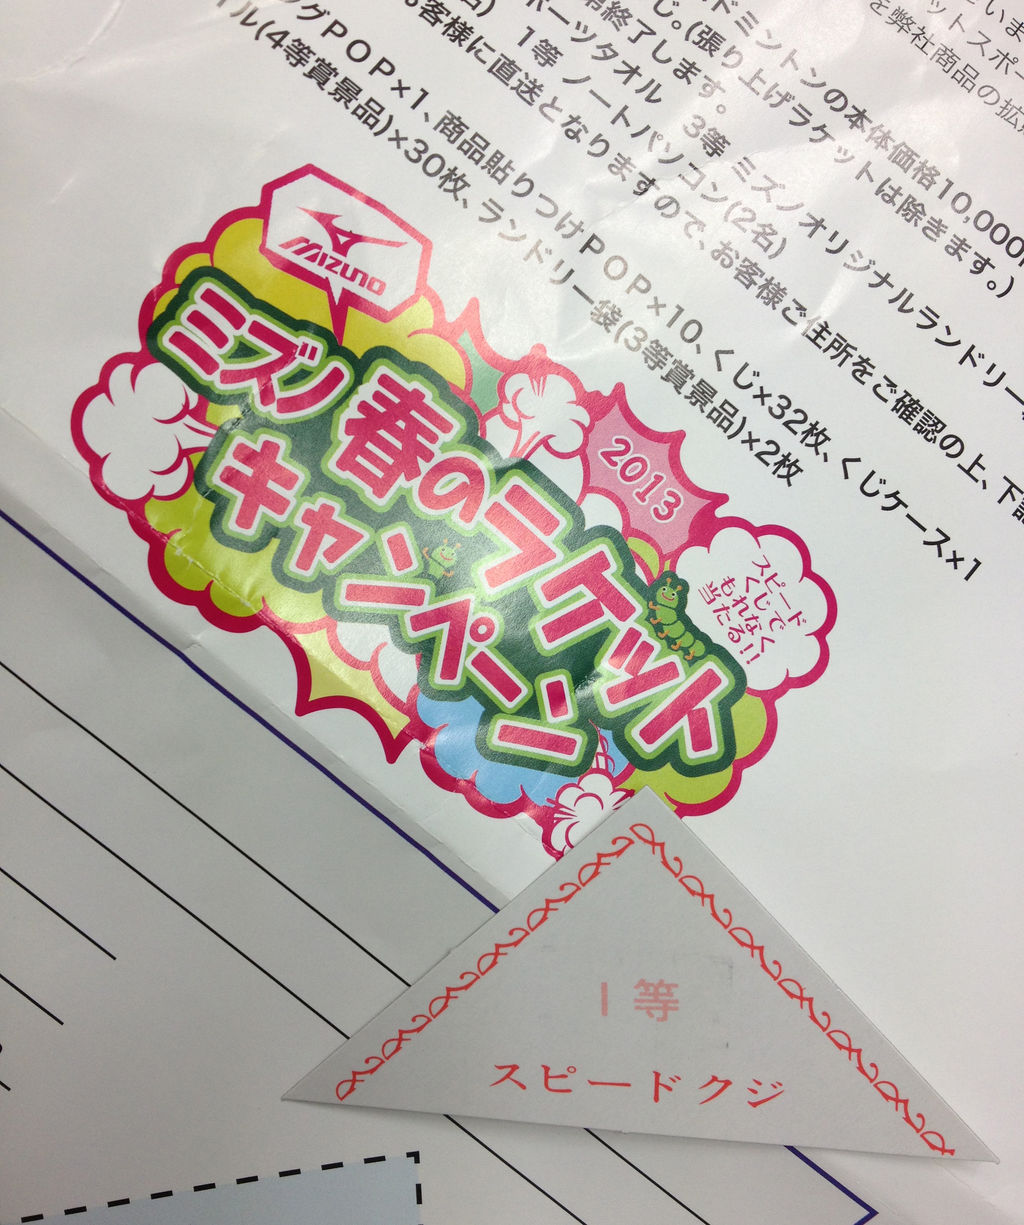 いま
ットスポー
を弊社商品の拡
ドミントンの本体価格10,000
じ。(張り上げラケットは除きます。)
終了します。
ポーツタオル 3等 ミズノオリジナルランドリー
1等 ノートパソコン(2名)
お客様に直送となりますので、お客様ご住所をご確認の上、下記
グPOP×1、商品貼りつけPOP×10、くじ×32枚、くじケース×1
イル(4等賞景品)×30枚、ランドリー袋(3等賞景品)×2枚
MIZUNO
ミズノ
春のラケット
キャンペーン
2013
スピード
くじで
もれなく
当たる!!
1等
スピードクジ